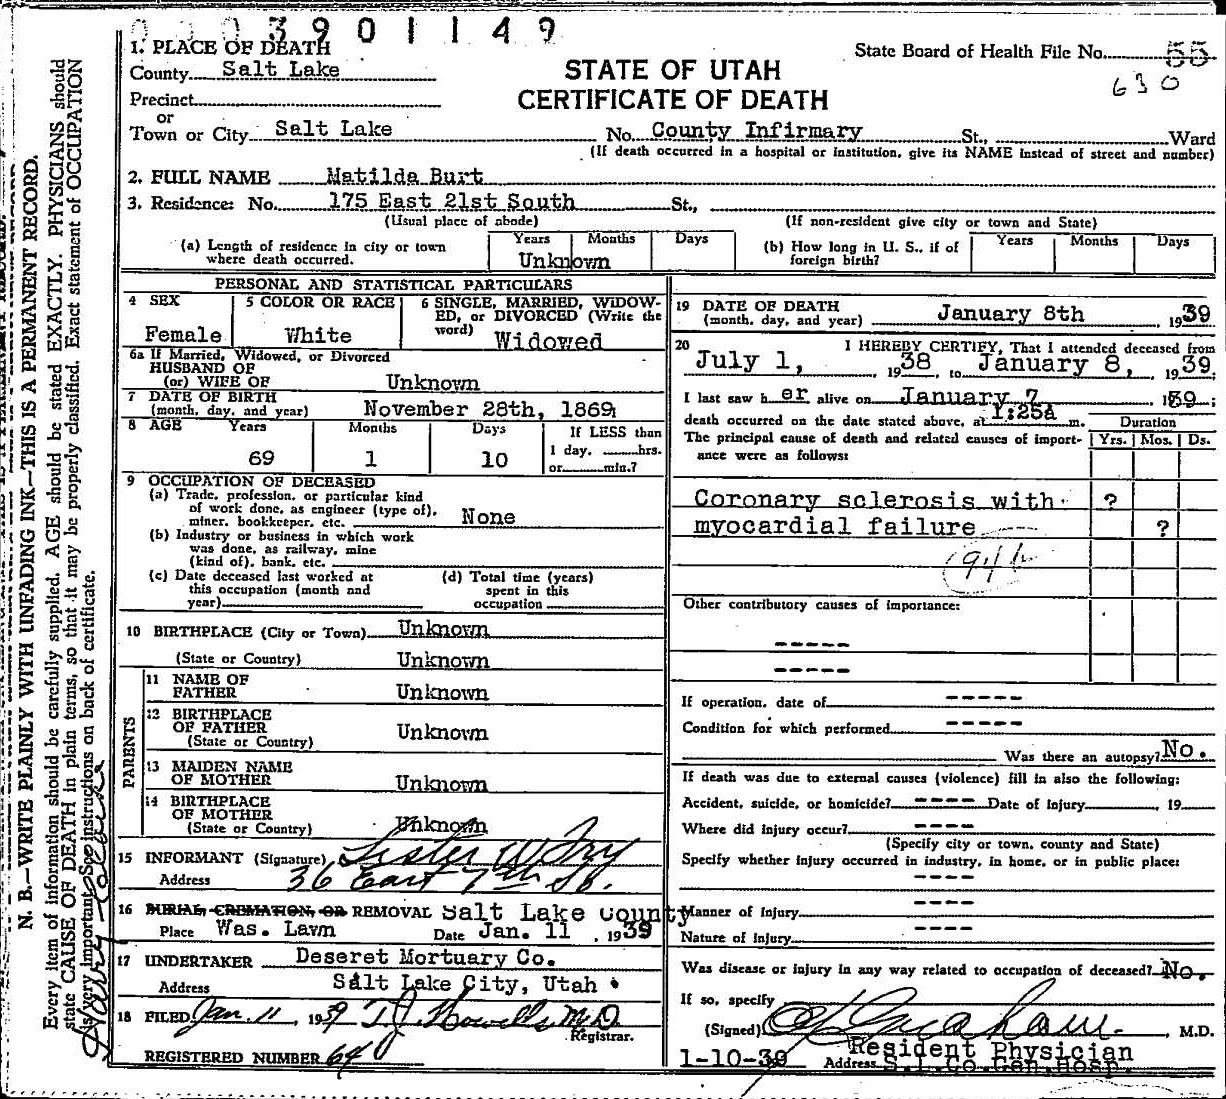 0003901149
1. PLACE OF DEATH
County Salt Lake
State Board of Health File No. 55
630
STATE OF UTAH
CERTIFICATE OF DEATH
Precinct
or
Town or City Salt Lake No. County Infirmary St., Ward
(If death occurred in a hospital or institution, give its NAME instead of street and number)
2. FULL NAME Matilda Burt
3. Residence: No. 175 East 21st South St.,
(Usual place of abode) (If non-resident give city or town and State)
(a) Length of residence in city or town where death occurred. Years Months Days
Unknown
(b) How long in U. S., if of foreign birth? Years Months Days
PERSONAL AND STATISTICAL PARTICULARS
4 SEX
Female
5 COLOR OR RACE
White
6 SINGLE, MARRIED, WIDOW-
ED, or DIVORCED (Write the
word) Widowed
6a If Married, Widowed, or Divorced
HUSBAND OF
(or) WIFE OF Unknown
7 DATE OF BIRTH
(month, day, and year) November 28th, 1869
8 AGE Years Months Days If LESS than
69 1 10 1 day, hrs.
or min.?
9 OCCUPATION OF DECEASED
(a) Trade, profession, or particular kind
of work done, as engineer (type of),
miner, bookkeeper, etc. None
(b) Industry or business in which work
was done, as railway, mine
(kind of), bank, etc.
(c) Date deceased last worked at
this occupation (month and
year)
(d) Total time (years)
spent in this
occupation
10 BIRTHPLACE (City or Town) Unknown
(State or Country) Unknown
PARENTS
11 NAME OF
FATHER Unknown
12 BIRTHPLACE
OF FATHER Unknown
(State or Country)
13 MAIDEN NAME
OF MOTHER Unknown
14 BIRTHPLACE
OF MOTHER
(State or Country) Unknown
15 INFORMANT (Signature) Lester W Fry
Address 36 East 7th So.
16 BURIAL, CREMATION, OR REMOVAL Salt Lake County
Place Was. Lawn Date Jan. 11, 1939
17 UNDERTAKER Deseret Mortuary Co.
Address Salt Lake City, Utah
18 FILED Jan. 11, 1939 T. J. Howells M.D.
Registrar.
REGISTERED NUMBER 64
19 DATE OF DEATH
(month, day, and year) January 8th 1939
20 I HEREBY CERTIFY, That I attended deceased from
July 1, 1938 to January 8, 1939
I last saw her alive on January 7 1939;
death occurred on the date stated above, at 1:25A m.
The principal cause of death and related causes of import-
ance were as follows:
Duration
Yrs. Mos. Ds.
Coronary sclerosis with ?
myocardial failure ?
Other contributory causes of importance:
-----
-----
If operation, date of -----
Condition for which performed -----
Was there an autopsy? No.
If death was due to external causes (violence) fill in also the following:
Accident, suicide, or homicide? ---- Date of injury , 19
Where did injury occur? ----
(Specify city or town, county and State)
Specify whether injury occurred in industry, in home, or in public place:
----
Manner of Injury ----
Nature of Injury ----
Was disease or injury in any way related to occupation of deceased? No.
If so, specify
(Signed) M.D.
Resident Physician
1-10-39 Address S.L.Co.Gen.Hosp.
N. B.—WRITE PLAINLY WITH UNFADING INK—THIS IS A PERMANENT RECORD.
Every item of information should be carefully supplied. AGE should be stated EXACTLY. PHYSICIANS should
state CAUSE OF DEATH in plain terms, so that it may be properly classified. Exact statement of OCCUPATION
is very important. See instructions on back of certificate.